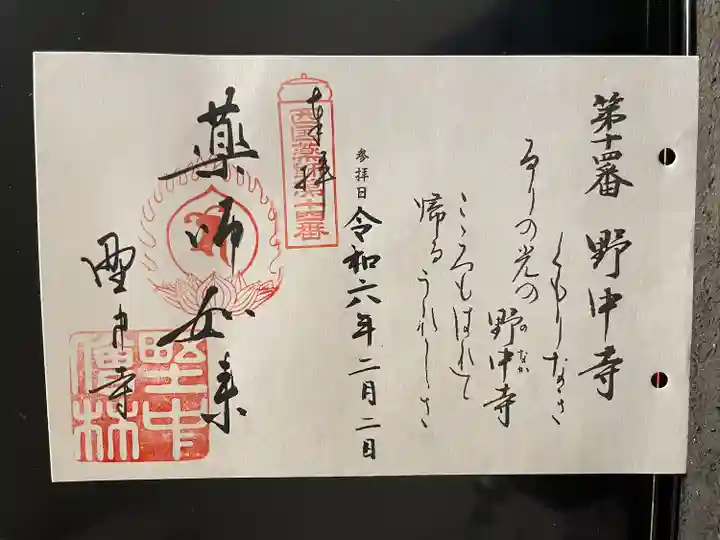 第十四番 野中寺
くもりなき
るりの光の 野中寺
のなか
こゝろもはれて
帰るうれしさ
参拝日 令和六年二月二日
奉拝
西国薬師第十四番
薬師如来
野中寺
野中
僧林